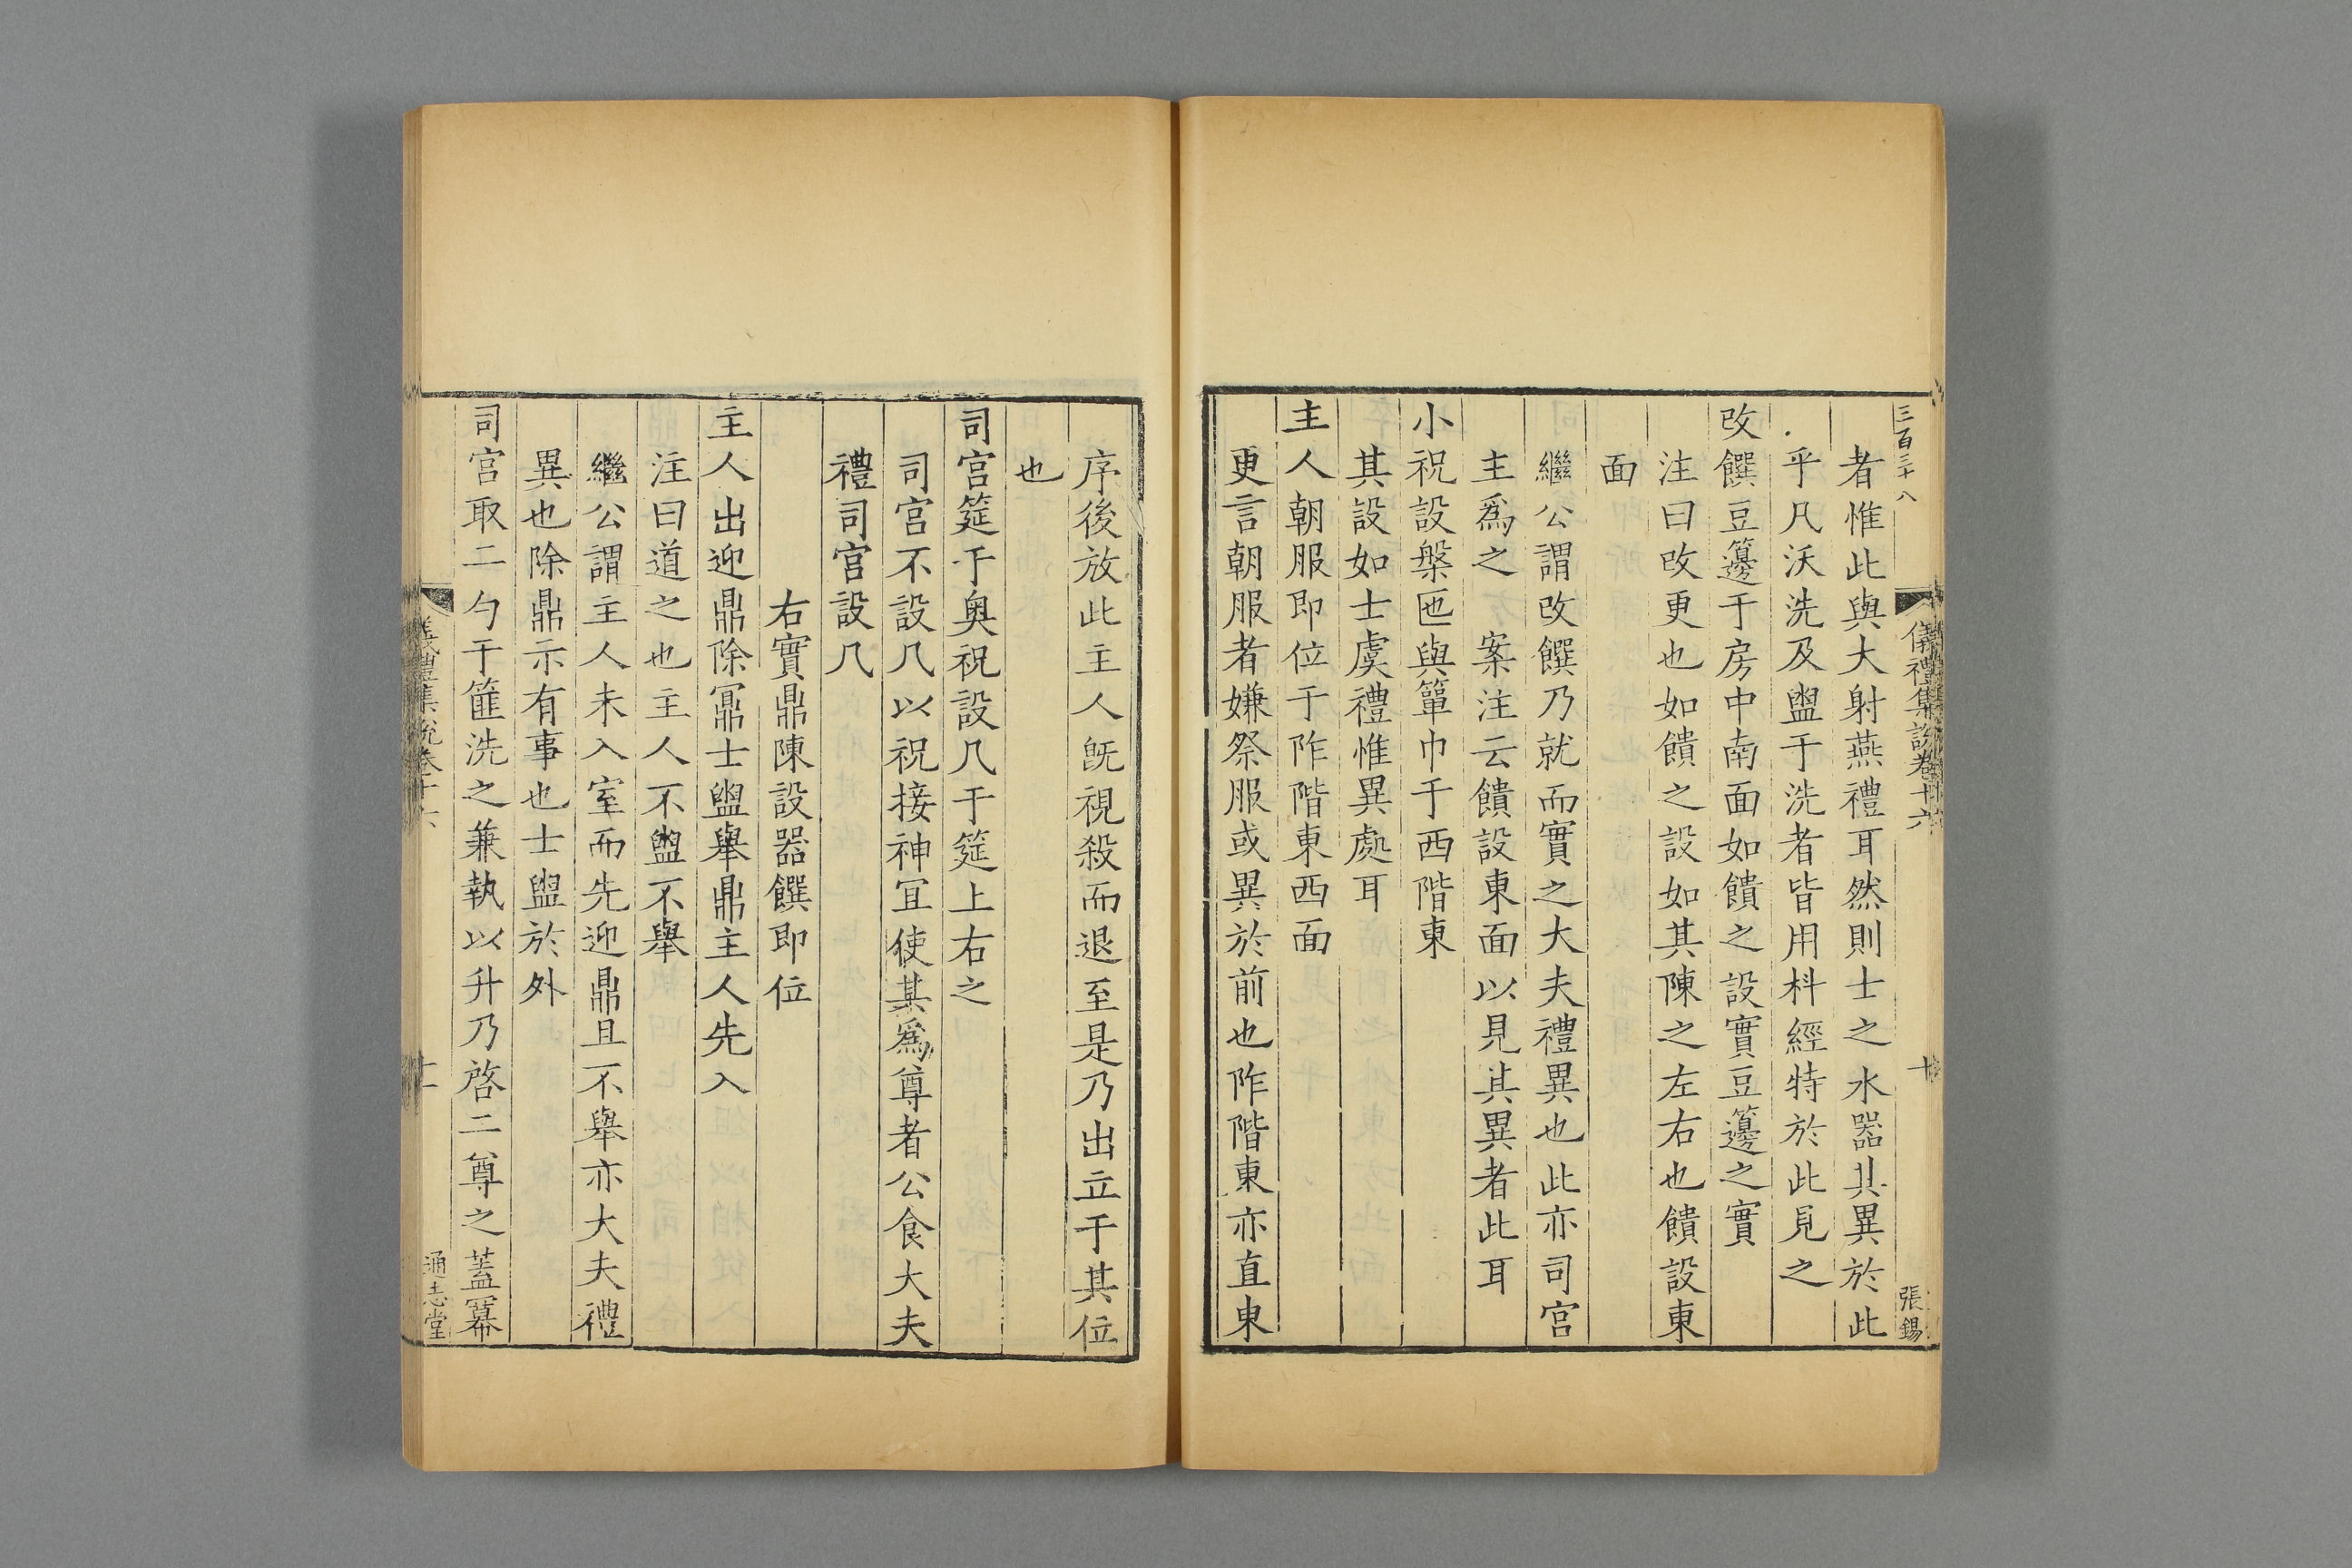 三百三十八
儀禮集說卷十六
十
張錫
者惟此與大射燕禮耳然則士之水器其異於此
乎凡沃洗及盥于洗者皆用枓經特於此見之
改饌豆籩于房中南面如饋之設實豆籩之實
注曰改更也如饋之設如其陳之左右也饋設東
面
繼公謂改饌乃就而實之大夫禮異也此亦司宮
主爲之 案注云饋設東面以見其異者此耳
小祝設槃匜與簞巾于西階東
其設如士虞禮惟異處耳
主人朝服即位于阼階東西面
更言朝服者嫌祭服或異於前也阼階東亦直東
序後放此主人旣視殺而退至是乃出立于其位
也
司宮筵于奧祝設几于筵上右之
司宮不設几以祝接神宜使其爲尊者公食大夫
禮司宮設几
右實鼎陳設器饌即位
主人出迎鼎除鼏士盥舉鼎主人先入
注曰道之也主人不盥不舉
繼公謂主人未入室而先迎鼎且不舉亦大夫禮
異也除鼎示有事也士盥於外
司宮取二勺于篚洗之兼執以升乃啓二尊之蓋冪
儀禮集說卷十六
十一
通志堂